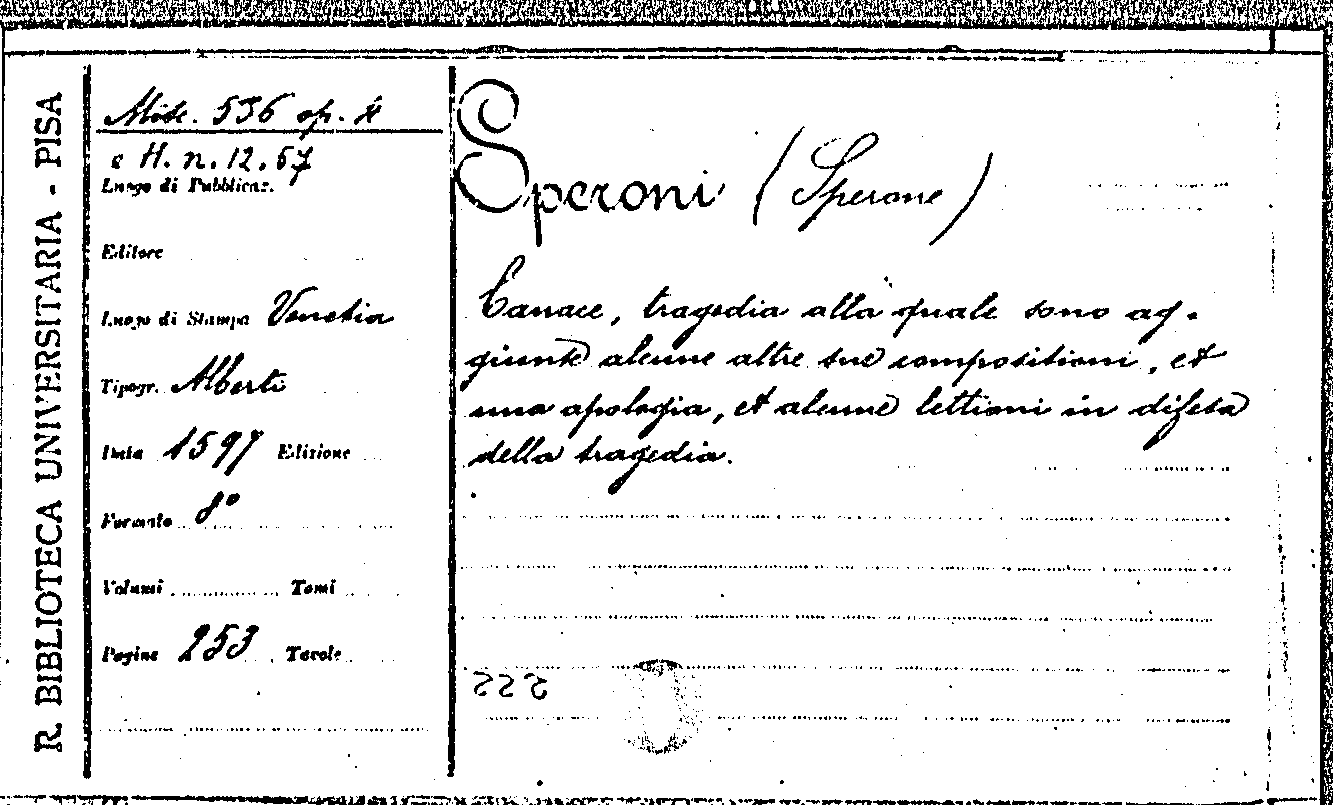 R. BIBLIOTECA UNIVERSITARIA - PISA
Misc. 536 op. 4
e H. n. 12. 57
Luogo di Pubblicaz.
Editore
Luogo di Stampa Venetia
Tipogr. Alberti
Data 1597 Edizione
Formato 8°
Volumi Tomi
Pagine 253 Tavole
Speroni (Sperone)
Canace, tragedia alla quale sono ag-
giunte alcune altre sue compositioni, et
una apologia, et alcune lettioni in difesa
della tragedia.